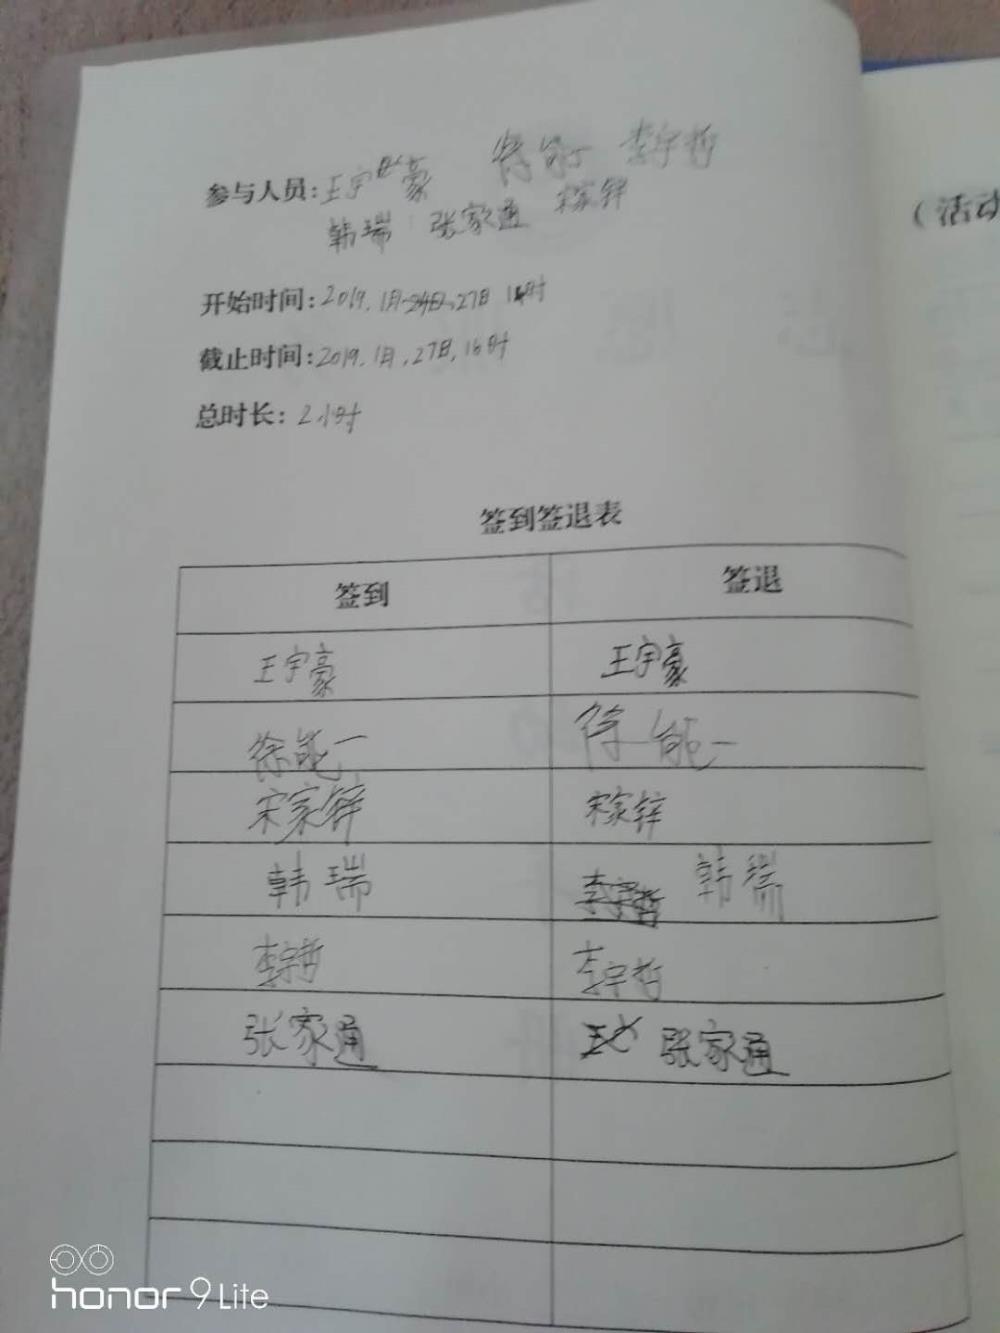 参与人员:王宇豪 徐能一 李宇哲
韩瑞 张家通 宋家锌
(活动
开始时间:2019.1月 27日 14时
截止时间:2019.1月.27日,16时
总时长:2小时
签到签退表
签到 签退
王宇豪 王宇豪
徐能一 徐能一
宋家锌 宋家锌
韩瑞 李宇哲 韩瑞
李宇哲 李宇哲
张家通 张家通
honor 9 Lite